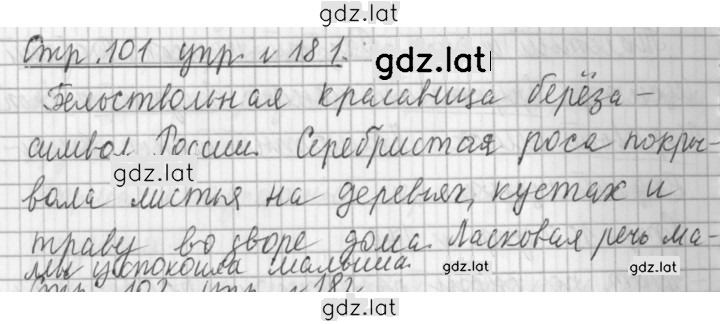 gdz.lat
Стр. 101 упр. № 181.
gdz.lat
Белоствольная красавица берёза -
символ России. Серебристая роса покры-
gdz.lat
вала листья на деревьях, кустах и
траву во дворе дома. Ласковая речь ма-
мы успокоила малыша.
gdz.lat
gdz.lat
Стр. 102 упр. № 182.
gdz.lat